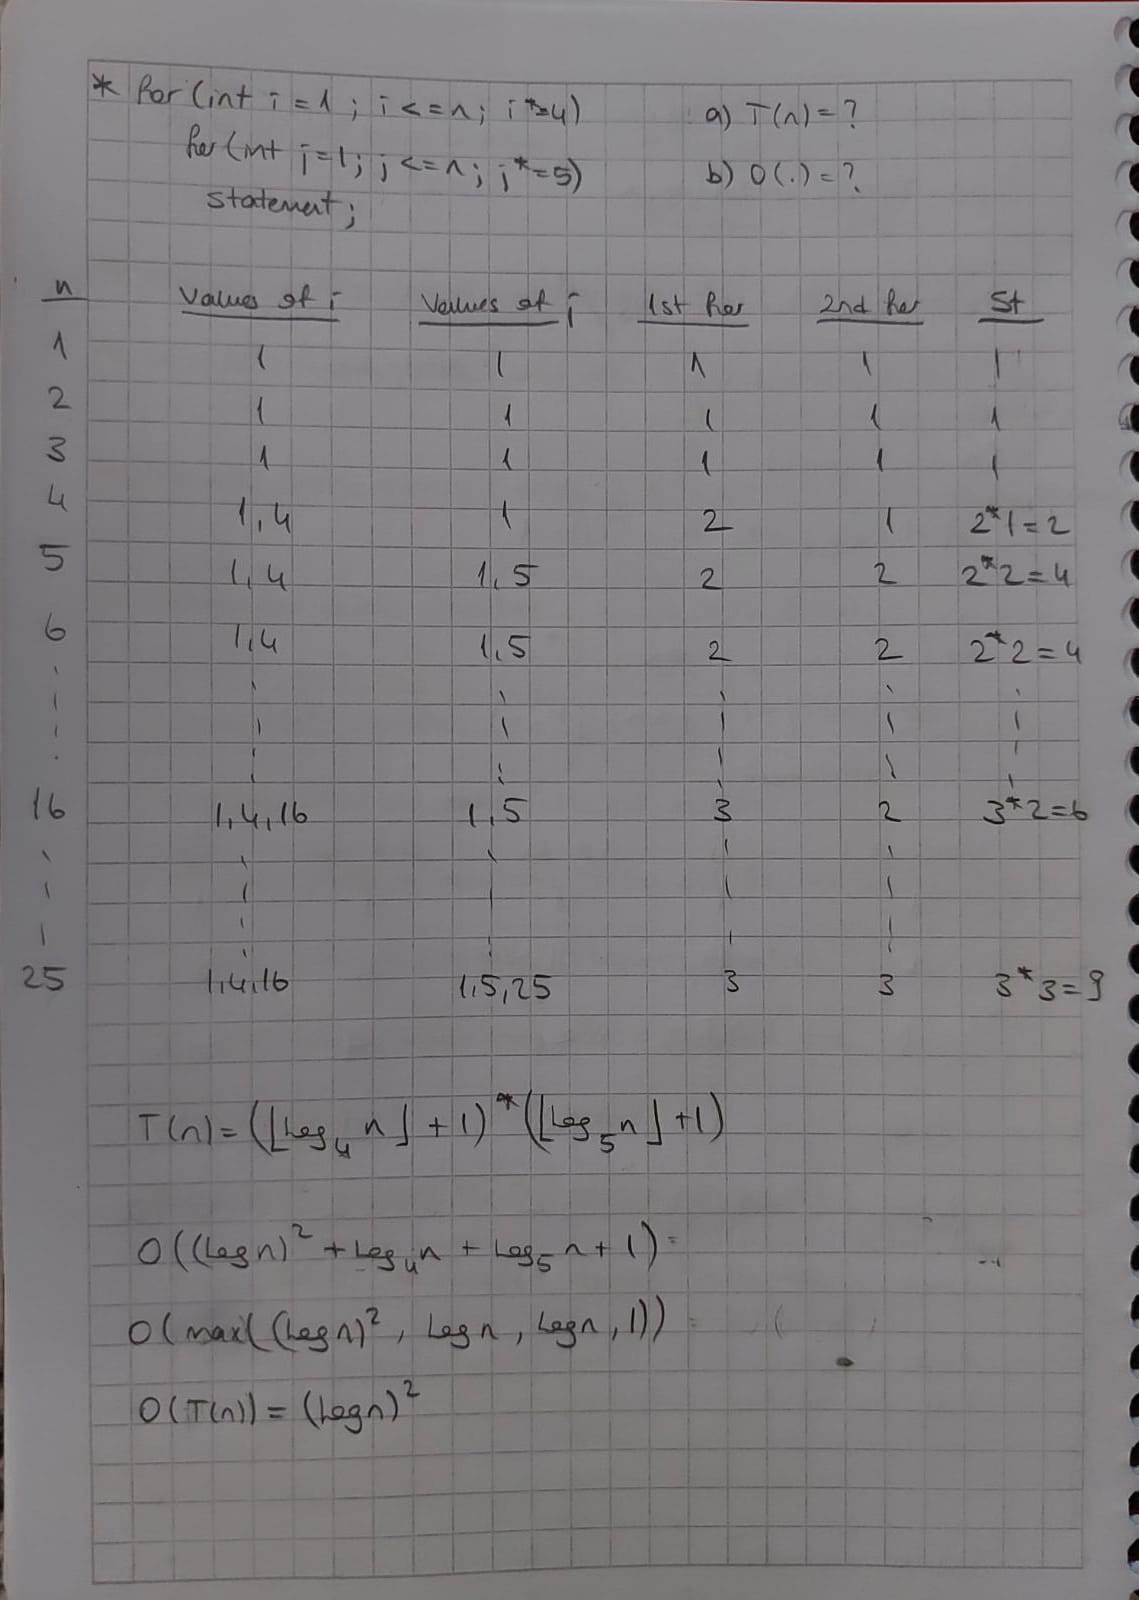 * for (int i = 1 ; i <= n ; i *= 4) a) T(n) = ?
for (int j = 1 ; j <= n ; j *= 5) b) O(.) = ?
statement;
n Values of i Values of j 1st for 2nd for St
1 1 1 1 1 1
2 1 1 1 1 1
3 1 1 1 1 1
4 1,4 1 2 1 2*1=2
5 1,4 1,5 2 2 2*2=4
6 1,4 1,5 2 2 2*2=4
16 1,4,16 1,5 3 2 3*2=6
25 1,4,16 1,5,25 3 3 3*3=9
T(n) = (⌊log₄ n⌋ + 1) * (⌊log₅ n⌋ + 1)
O((log n)² + log₄ n + log₅ n + 1) =
O(max((log n)², log n, log n, 1))
O(T(n)) = (log n)²